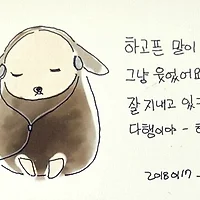 하고픈 말이
그냥 웃었어요
잘 지내고 있구
다행이야 -
2018 01 17